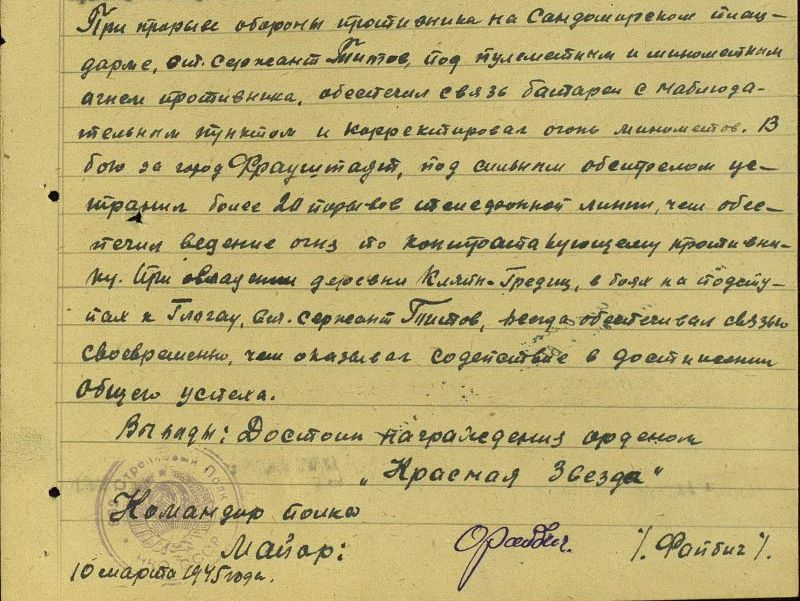 При прорыве обороны противника на Сандомирском плац-
дарме, ст. сержант Титов, под пулеметным и минометным
огнем противника, обеспечил связь батареи с наблюда-
тельным пунктом и корректировал огонь минометов. В
бою за город Фрауштадт, под сильным обстрелом ус-
транил более 20 порывов телефонной линии, чем обес-
печил ведение огня по контратакующему противни-
ку. При овладении деревни Кляйн-Гредиц, в боях на подсту-
пах к Глогау, ст. сержант Титов, всегда обеспечивал связью
своевременно, чем оказывал содействие в достижении
общего успеха.
Выводы: Достоин награждения орденом
„Красная Звезда"
Стрелковый Полк
Командир полка
Майор: /. Файбич /.
10 марта 1945 года.